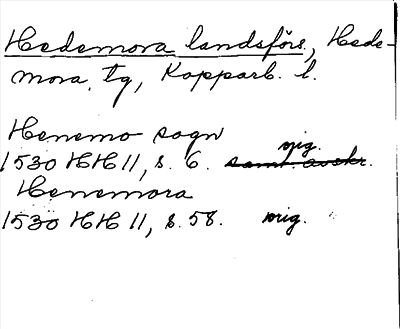 Hedemora landsförs., Hede-
mora, tg, Kopparb. l.
Henemo sogn
orig.
1530 HH II, s. 6. samt. avskr.
Henemora
1530 HH II, s. 58. orig.